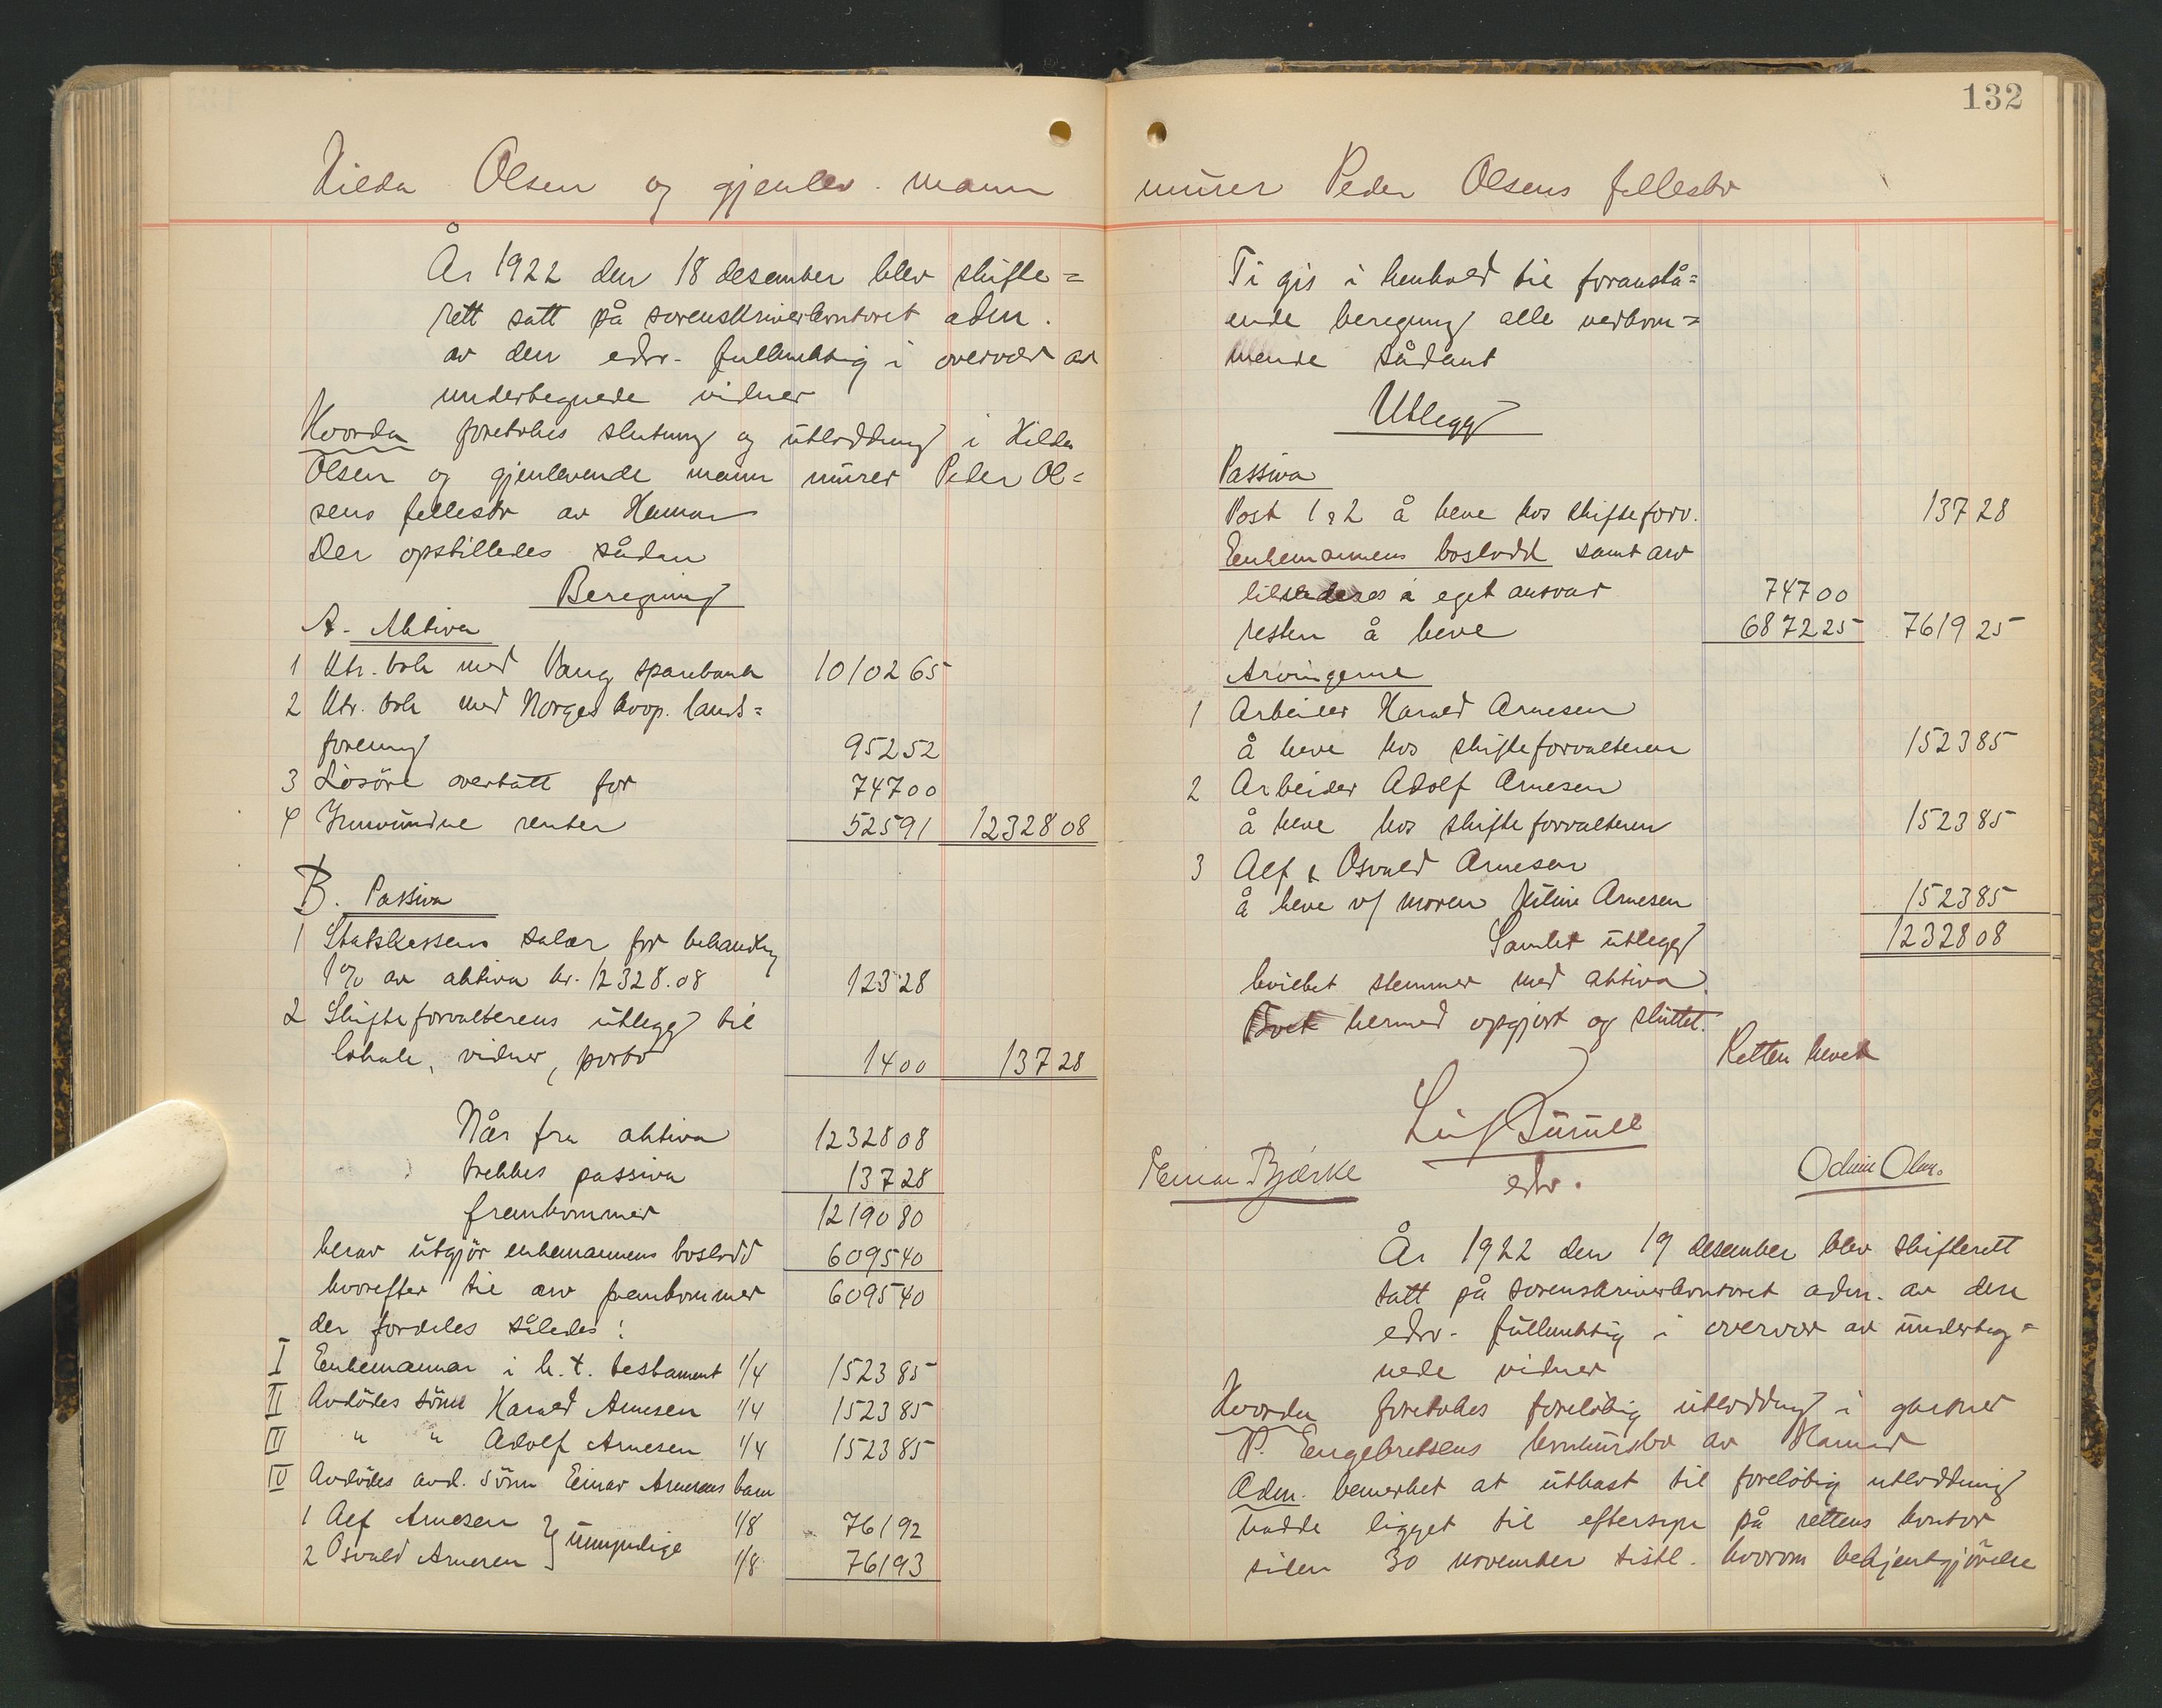 132
Hilda Olsen og gjenlev. mann murer Peder Olsens fellesbo
År 1922 den 18 desember blev skifte=
rett satt på sorenskriverkontoret adm.
av den edsv. fullmektig i overvær av
undertegnede vidner
Hvorda foretokes slutning og utlodding i Hilda
Olsen og gjenlevende mann murer Peder Ol=
sens fellesbo av Hamar
Der opstilledes sådan
Beregning
A. Aktiva
1 Ktr. bok med Vang sparebank 10102 65
2 Ktr. bok med Norges koop. lands=
forening 952 52
3 Løsøre overtatt for 747 00
4 Innvundne renter 525 91 12328 08
B. Passiva
1 Statskassens salær for behandlg
1% av aktiva kr. 12328.08 123 28
2 Skifteforvalterens utlegg til
lokale, vidner, porto 14 00 137 28
Når fra aktiva 12328 08
trekkes passiva 137 28
fremkommer 12190 80
herav utgjør enkemannens boslodd 6095 40
hvorefter til arv fremkommer 6095 40
der fordeles således:
I Enkemannen i h. t. testament 1/4 1523 85
II Avdødes sønn Harald Arnesen 1/4 1523 85
III " " Adolf Arnesen 1/4 1523 85
IV Avdødes avd. sønn Einar Arnesens barn
1 Alf Arnesen } umyndige 1/8 761 92
2 Osvald Arnesen 1/8 761 93
Ti gis i henhold til foranstå=
ende beregning alle vedkom=
mende sådant
Utlegg
Passiva
Post 1 & 2 å heve hos skifteforv. 137 28
Enkemannens boslodd samt arv
eget ansvar 747 00
resten å heve 6872 25 7619 25
Arvingerne
1 Arbeider Harald Arnesen
å heve hos skifteforvalteren 1523 85
2 Arbeider Adolf Arnesen
å heve hos skifteforvalteren 1523 85
3 Alf & Osvald Arnesen
å heve v/ moren Arnesen 1523 85
Samlet utlegg 12328 08
hvilket stemmer med aktiva.
Boet hermed opgjort og sluttet.
Retten hevet
Leif
Einar Bjerke edsv. Odin Olsen.
År 1922 den 19 desember blev skifterett
satt på sorenskriverkontoret adm. av den
edsv. fullmektig i overvær av underteg=
nede vidner
Hvorda foretokes foreløbig utlodding i gartner
P. Engebretsens konkursbo av Hamar
Adm. bemerket at utkast til foreløbig utlodding
hadde ligget til eftersyn på rettens kontor
siden 30 november sistl. hvorom bekjentgjørelse